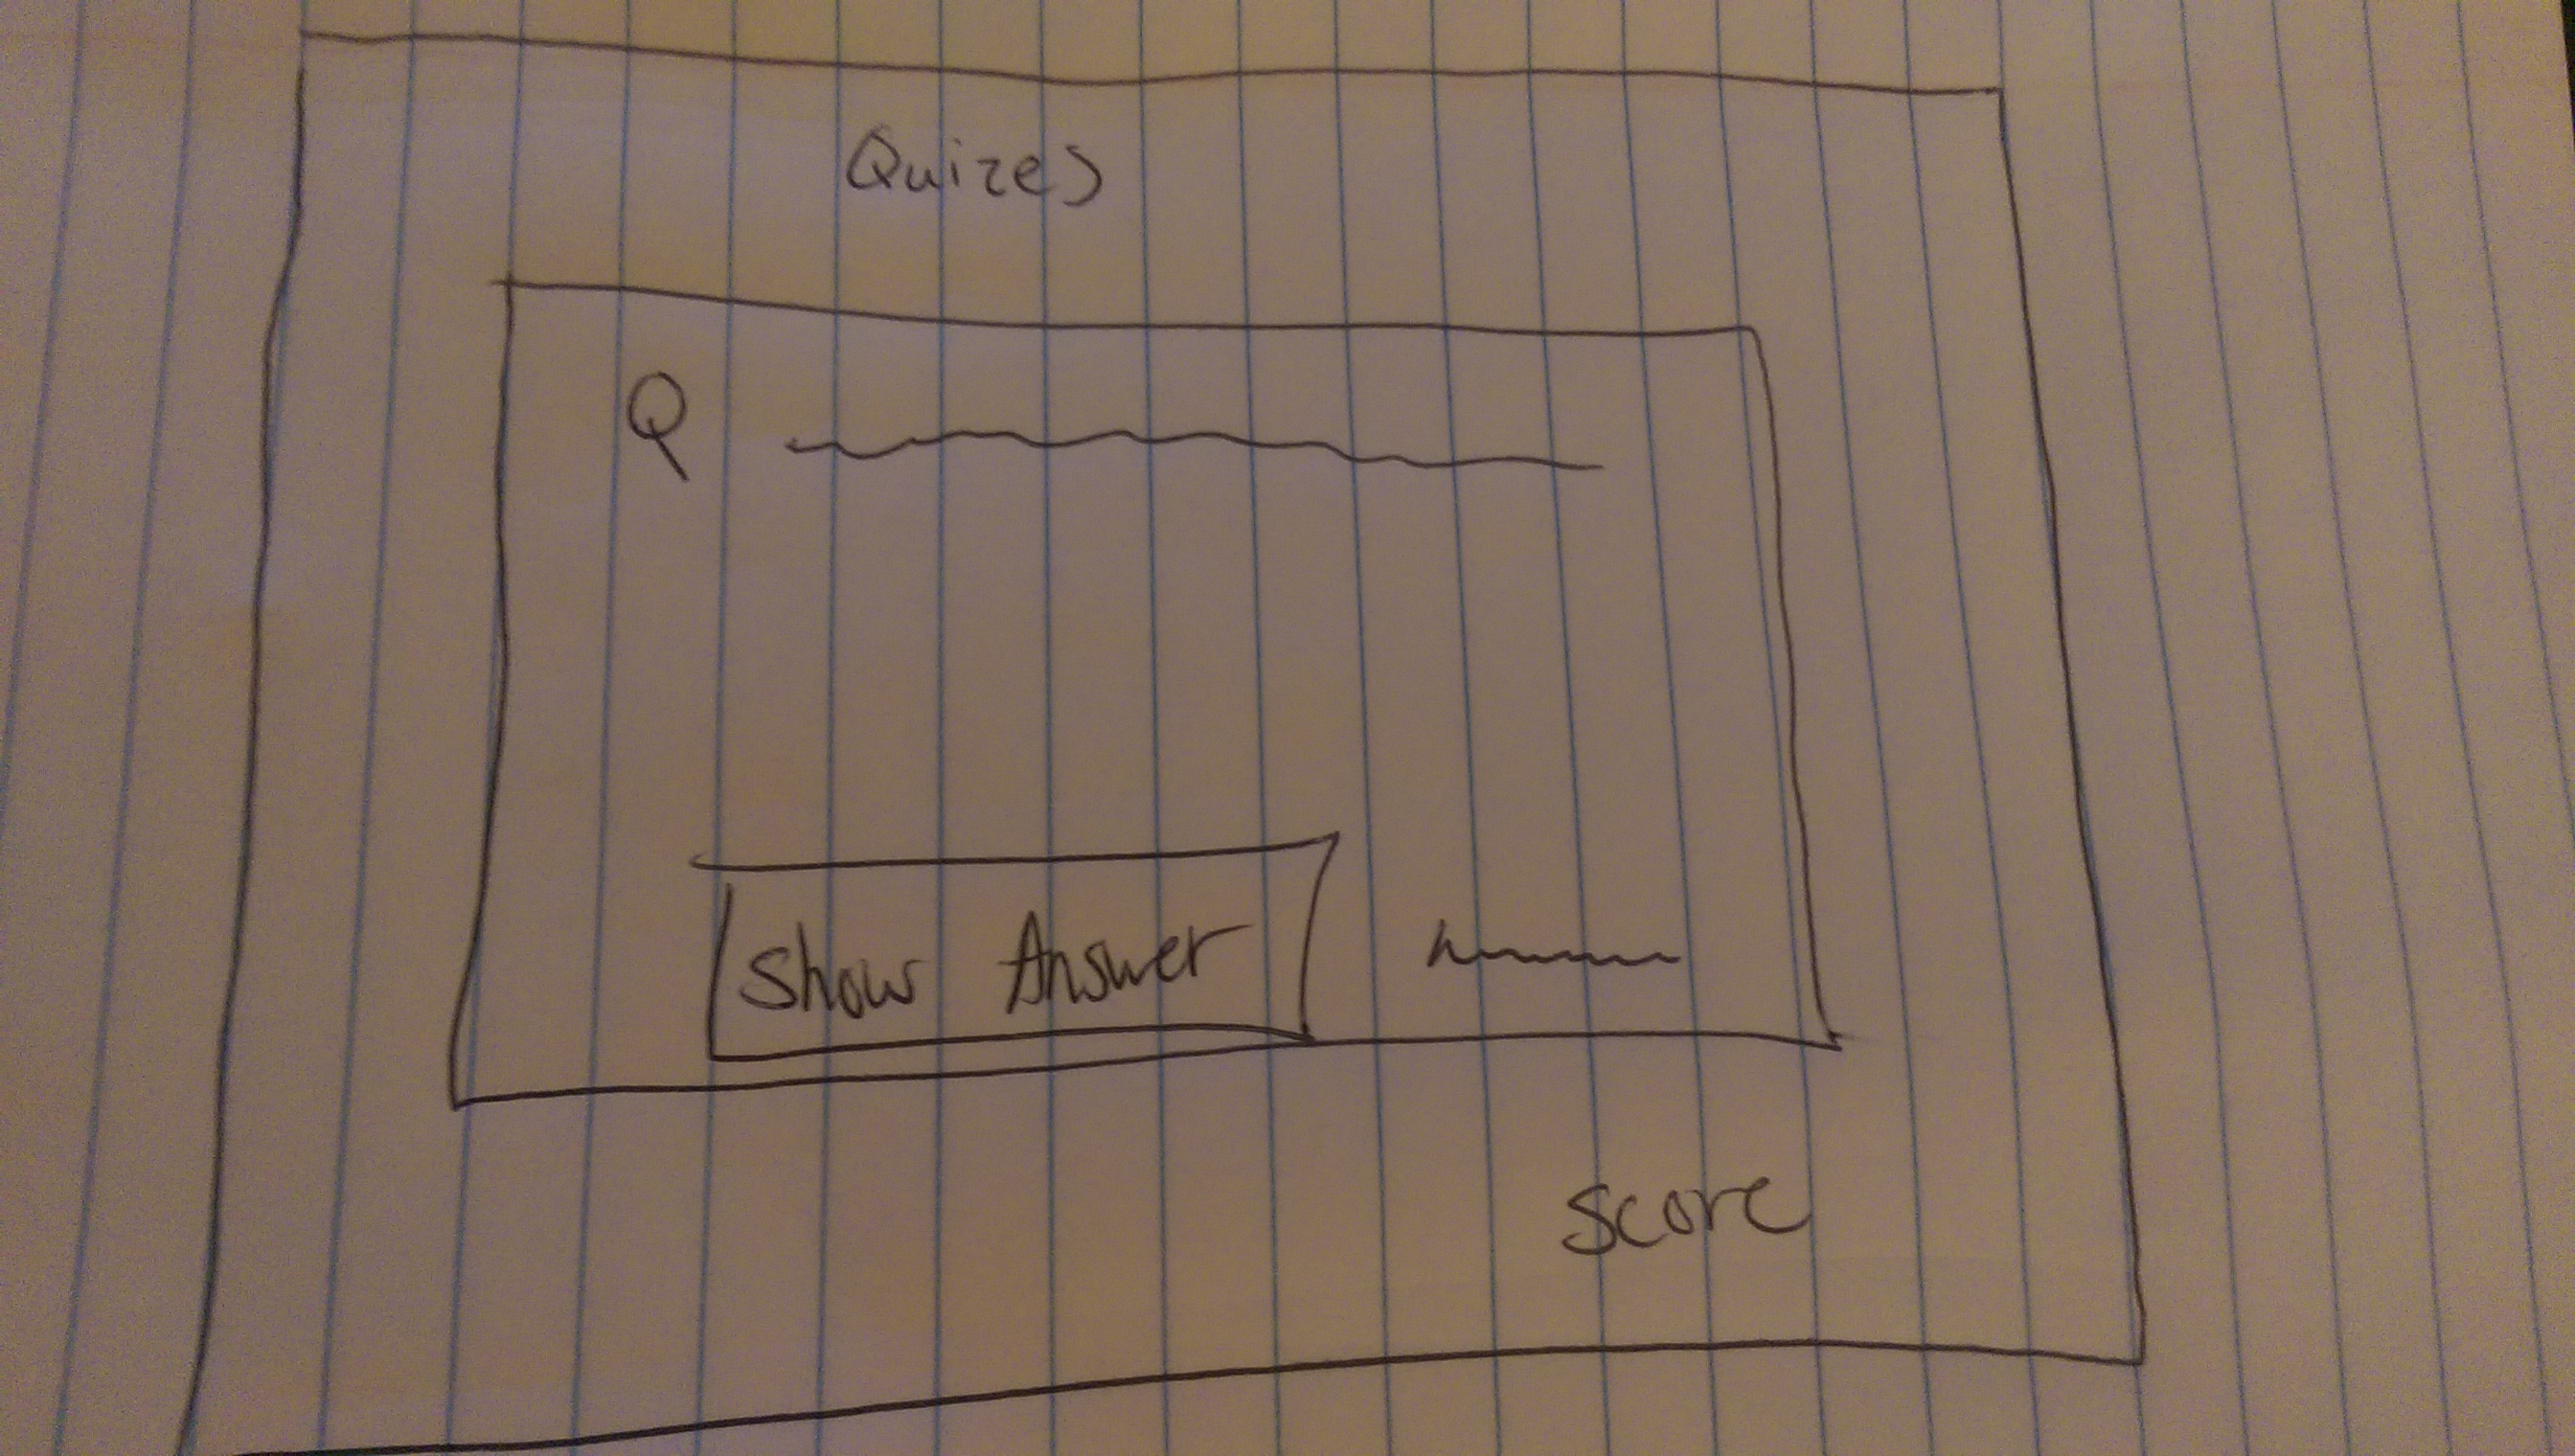 Quizes
Q
Show Answer
Score